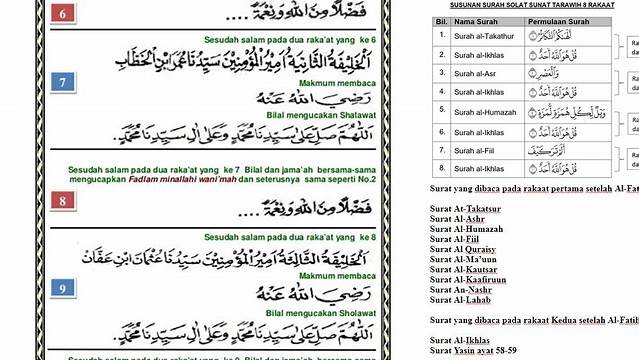 6
فَضْلًا مِنَ اللّٰهِ وَنِعْمَةً ....
Sesudah salam pada dua rakaat yang ke 6
7
اَلْخَلِيْفَةُ الثَّانِيَةُ اَمِيْرُ الْمُؤْمِنِيْنَ سَيِّدُنَا عُمَرُ ابْنُ الْخَطَّابِ
Makmum membaca
رَضِيَ اللّٰهُ عَنْهُ
Bilal mengucakan Shalawat
اَللّٰهُمَّ صَلِّ عَلَى سَيِّدِنَا مُحَمَّدٍ وَعَلَى اٰلِ سَيِّدِنَا مُحَمَّدٍ.
Sesudah salam pada dua raka'at yang ke 7 Bilal dan jama'ah bersama-sama
mengucapkan Fadlam minallahi wani'mah dan seterusnya sama seperti No.2
8
فَضْلًا مِنَ اللّٰهِ وَنِعْمَةً ....
Sesudah salam pada dua raka'at yang ke 8
اَلْخَلِيْفَةُ الثَّالِثَةُ اَمِيْرُ الْمُؤْمِنِيْنَ سَيِّدُنَا عُثْمَانُ ابْنِ عَفَّانَ
Makmum membaca
9
رَضِيَ اللّٰهُ عَنْهُ
Bilal mengucakan Sholawat
اَللّٰهُمَّ صَلِّ عَلَى سَيِّدِنَا مُحَمَّدٍ وَعَلَى اٰلِ سَيِّدِنَا مُحَمَّدٍ.
SUSUNAN SURAH SOLAT SUNAT TARAWIH 8 RAKAAT
Bil. Nama Surah Permulaan Surah
1. Surah al-Takathur أَلْهَىٰكُمُ ٱلتَّكَاثُرُ
2. Surah al-Ikhlas قُلْ هُوَ ٱللَّهُ أَحَدٌ
3. Surah al-Asr وَٱلْعَصْرِ
4. Surah al-Ikhlas قُلْ هُوَ ٱللَّهُ أَحَدٌ
5. Surah al-Humazah وَيْلٌ لِّكُلِّ هُمَزَةٍ لُّمَزَةٍ
6. Surah al-Ikhlas قُلْ هُوَ ٱللَّهُ أَحَدٌ
7. Surah al-Fiil أَلَمْ تَرَ كَيْفَ
8. Surah al-Ikhlas قُلْ هُوَ ٱللَّهُ أَحَدٌ
Surat yang dibaca pada rakaat pertama setelah Al-Fat
Surat At-Takatsur
Surat Al-Ashr
Surat Al-Humazah
Surat Al-Fiil
Surat Al Quraisy
Surat Al-Ma'uun
Surat Al-Kautsar
Surat Al-Kaafiruun
Surat An-Nashr
Surat Al-Lahab
Surat yang dibaca pada rakaat Kedua setelah Al-Fatil
Surat Al-Ikhlas
Surat Yasin ayat 58-59